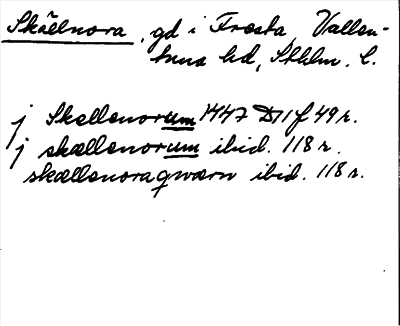 Skällnora, gd i Frösta, Vallen-
tuna hd, Sthlm. l.
j Skællanorum 1447 D11 f 49 r.
j skællanorum ibid. 118 r.
skællanoraqwærn ibid. 118 r.